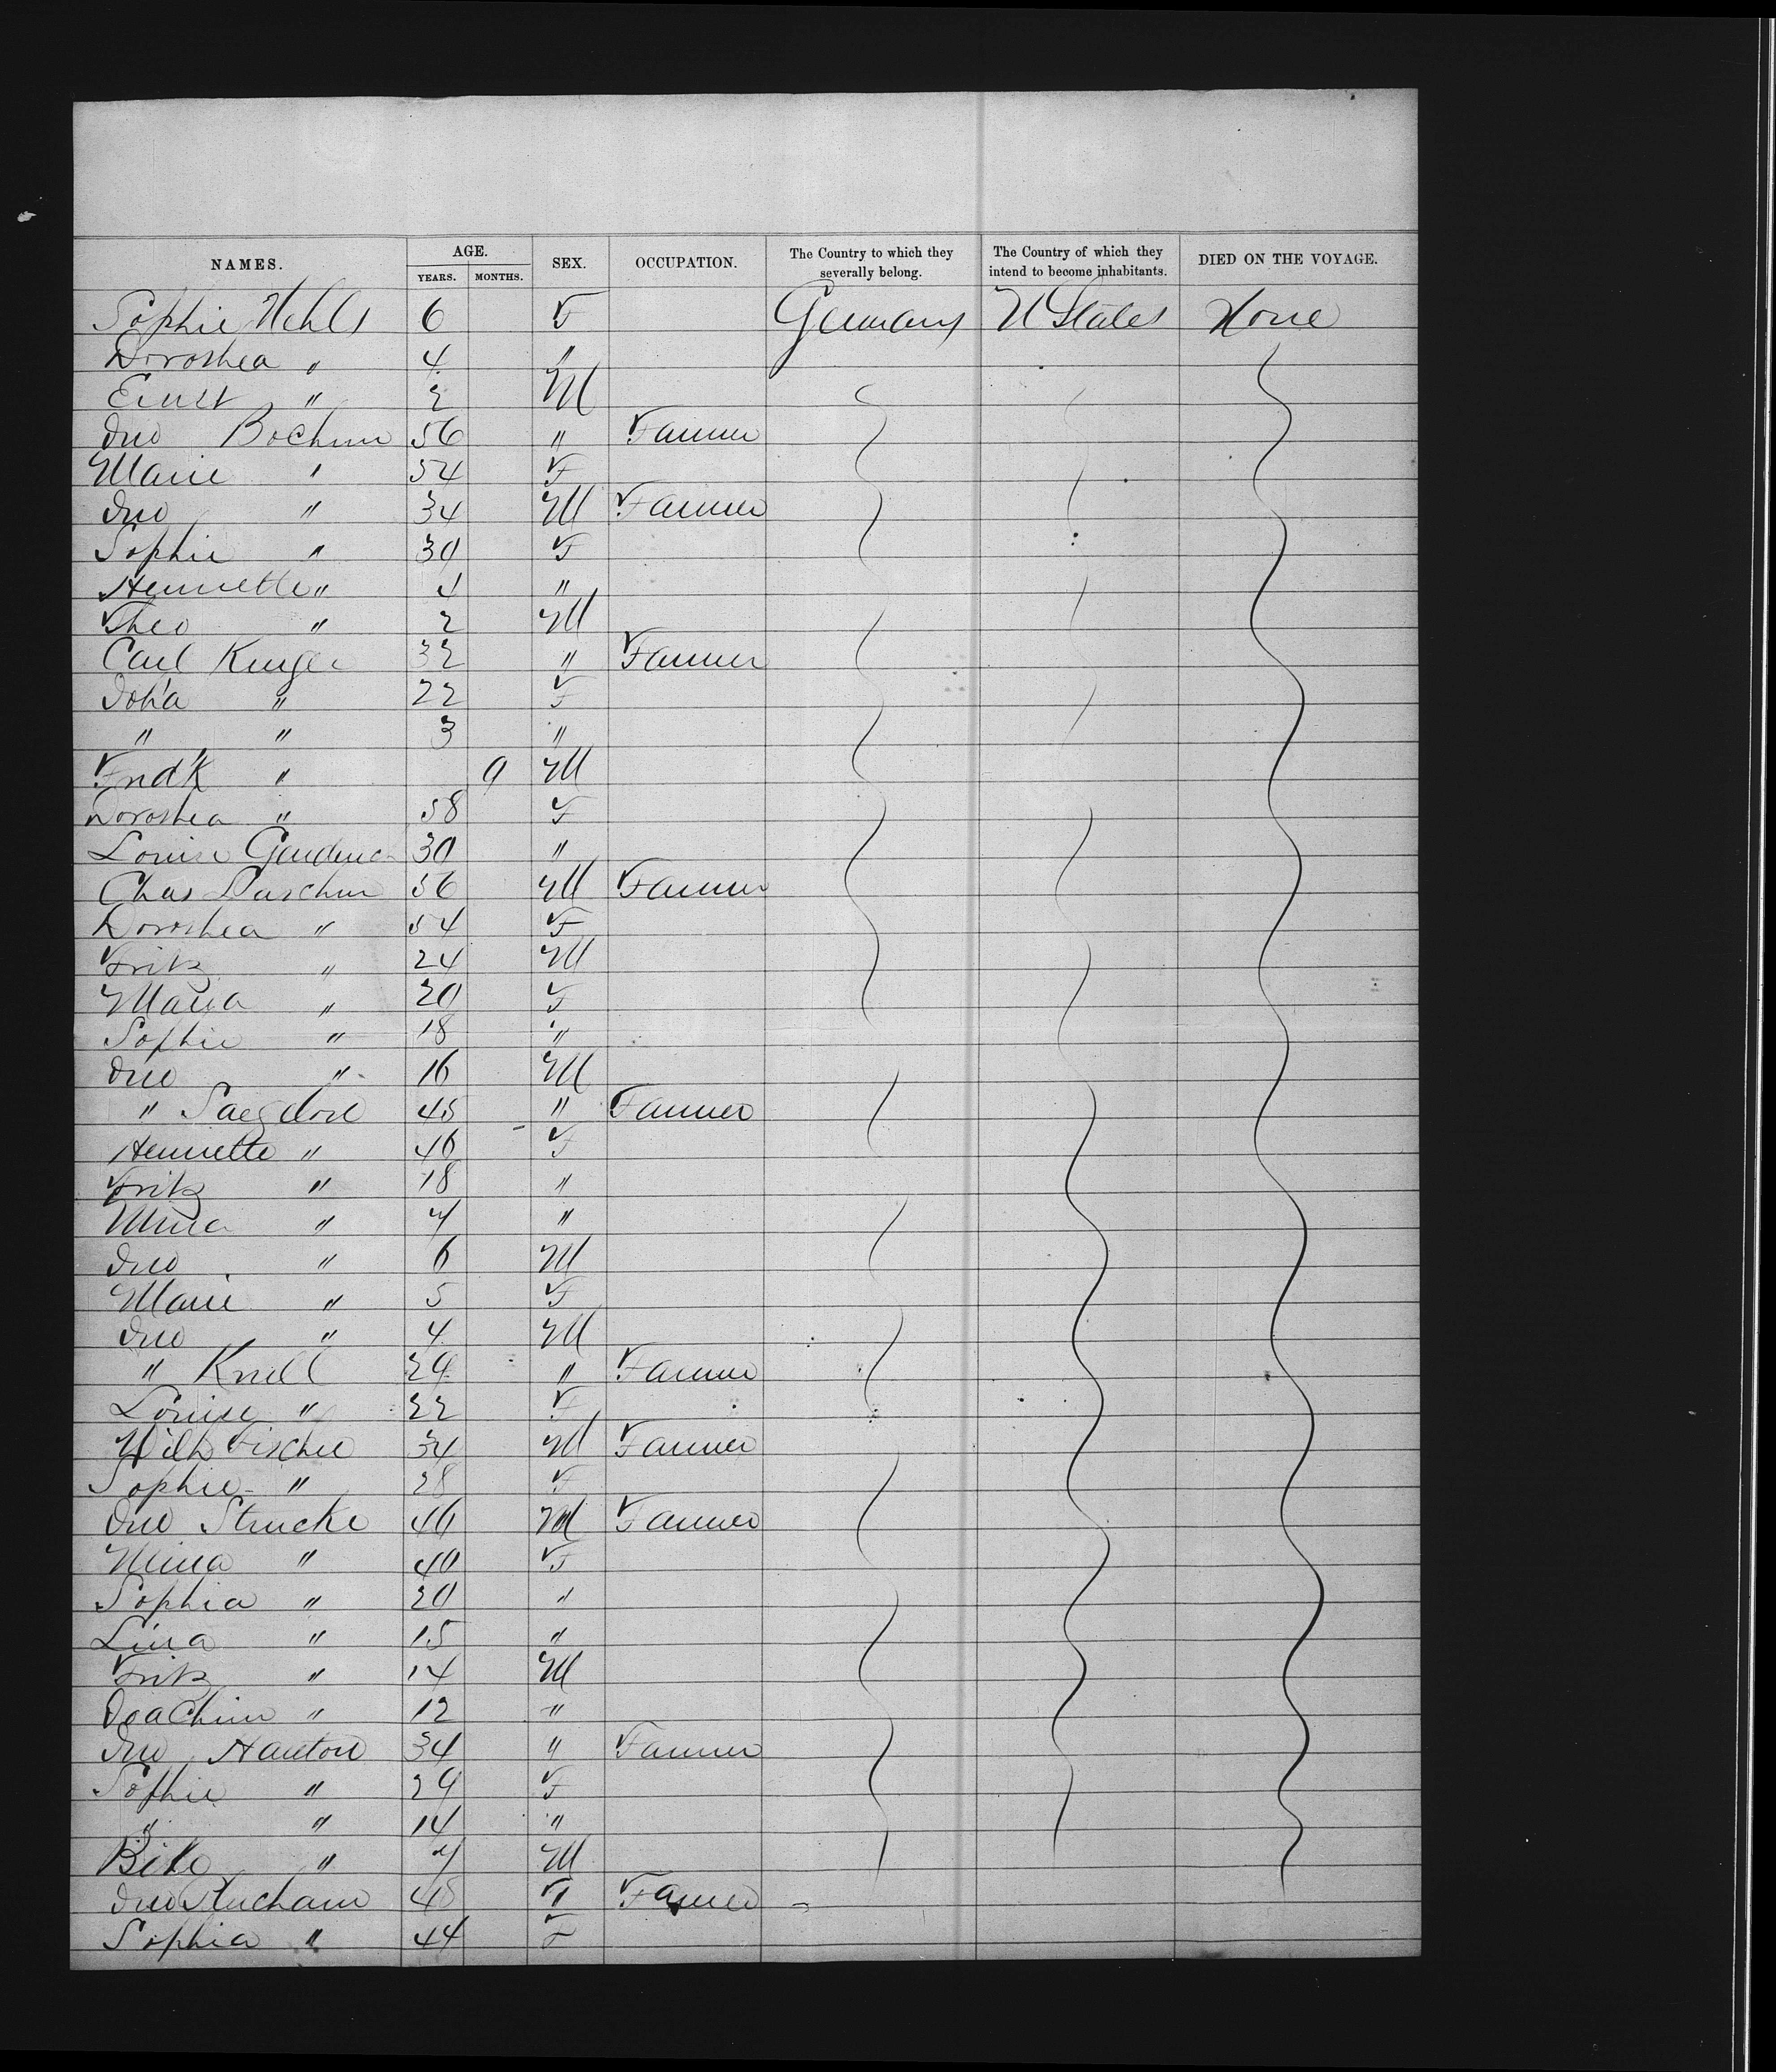 NAMES. AGE. YEARS. MONTHS. SEX. OCCUPATION. The Country to which they severally belong. The Country of which they intend to become inhabitants. DIED ON THE VOYAGE.
Sophie 6 F Germany U States None
Dorothea " 4 "
Ernst " 2 M
Jno Bochum 56 " Farmer
Marie " 54 F
Jno " 34 M Farmer
Sophie " 30 F
Henriette " 4 "
Theo " 2 M
Carl Kruger 32 " Farmer
Joh'a " 22 F
" " 3 "
Fred'k " 9 M
Dorothea " 58 F
Louise 30 "
Chas 56 M Farmer
Dorothea " 54 F
Fritz " 24 M
Maria " 20 F
Sophie " 18 "
Jno " 16 M
" 45 " Farmer
Henriette " 46 F
Fritz " 18 "
Mina " 7 "
Jno " 6 M
Marie " 5 F
Jno " 4 M
" Knell 29 " Farmer
Louise " 22 F
Wilh Fischer 34 M Farmer
Sophie " 28 F
Jno Strucke 46 M Farmer
Mina " 40 F
Sophia " 20 "
Lina " 15 "
Fritz " 14 M
Joachim " 12 "
Jno 34 " Farmer
Sophie " 29 F
" " 14 "
" 7 M
Jno 48 Farmer
Sophia " 44 F